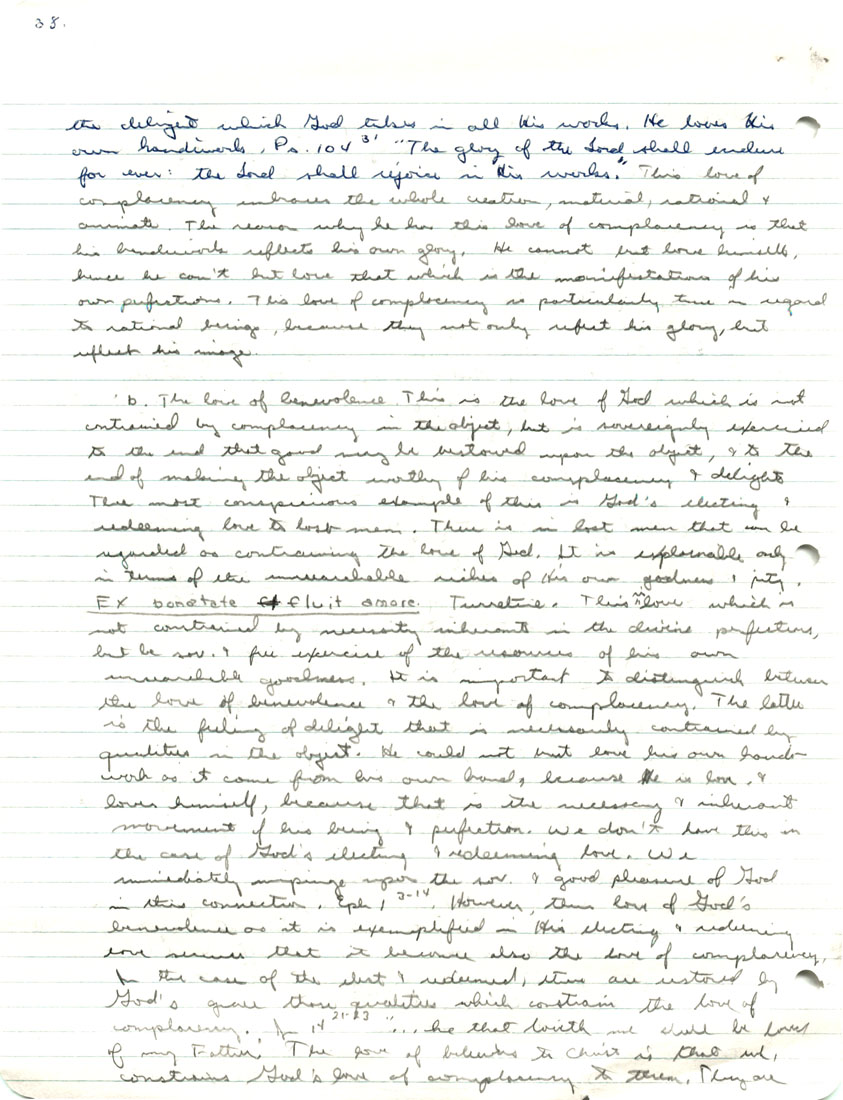 38.
the delight which God takes in all His works. He loves His
own handiwork. Ps. 104 31 "The glory of the Lord shall endure
for ever: the Lord shall rejoice in His works." This love of
complacency embraces the whole creation, material, rational &
animate. The reason why he has this love of complacency is that
his handiwork reflects his own glory. He cannot but love himself,
hence he can't but love that which is the manifestations of his
own perfections. This love of complacency is particularly true in regard
to rational beings, because they not only reflect his glory, but
reflect his image.
b. The love of benevolence This is the love of God which is not
contrained by complacency in the object, but is sovereignly exercised
to the end that good may be bestowed upon the object, & to the
end of making the object worthy of his complacency & delight.
The most conspicuous example of this is God's electing &
redeeming love to lost men. There is in lost men that can be
regarded as contraining the love of God. It is explainable only
in terms of the unsearchable riches of His own goodness & pity.
Ex bonetate fluit amore. Turretine. This is love which is
not contrained by necessity inherent in the divine perfections,
but be sov. & free exercise of the resources of his own
unsearchable goodness. It is important to distinguish between
the love of benevolence & the love of complacency. The latter
is the feeling of delight that is necessarily contrained by
qualities in the object. He could not but love his own hand-
work as it came from his own hand, because He is love, &
loves himself, because that is the necessary & inherent
movement of his being & perfection. We don't have this in
the case of God's electing & redeeming love. We
immediately impinge upon the sov. & good pleasure of God
in this connection. Eph. 1 3-14. However, this love of God's
benevolence as it is exemplified in His electing & redeeming
love secures that it become also the love of complacency.
In the case of the elect & redeemed, there are restored by
God's grace those qualities which constrain the love of
complacency. Jn 14 21-23 "... he that loveth me shall be loved
of my Father." The love of believers to Christ is that wh.
constrains God's love of complacency to them. They are